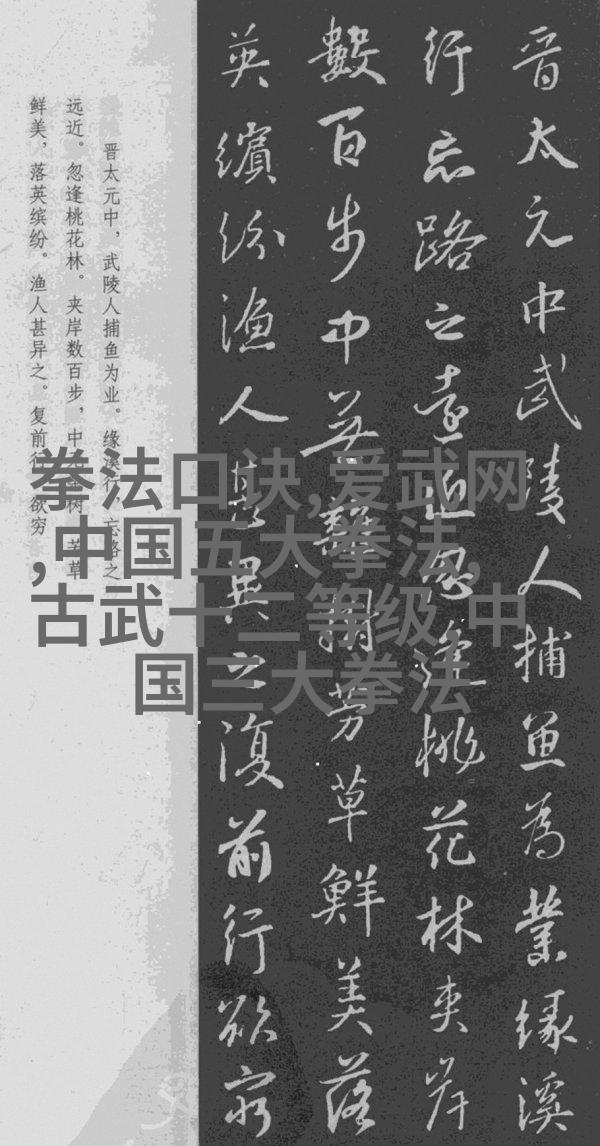 晋太元中武陵人捕魚為業緣溪
行忘路之遠近忽逢桃花林夹岸
數百步中無雜樹芳草鮮美落
英繽紛漁人甚異之復前行欲窮
晋太元中，武陵人捕鱼为业。缘溪行，忘路之
远近。忽逢桃花林。夹岸数百步，中无杂树，芳草
鲜美，落英缤纷。渔人甚异之。复前行，欲穷
拳法口诀,爱武网
,中国五大拳法,
古武十二等级,中
国三大拳法